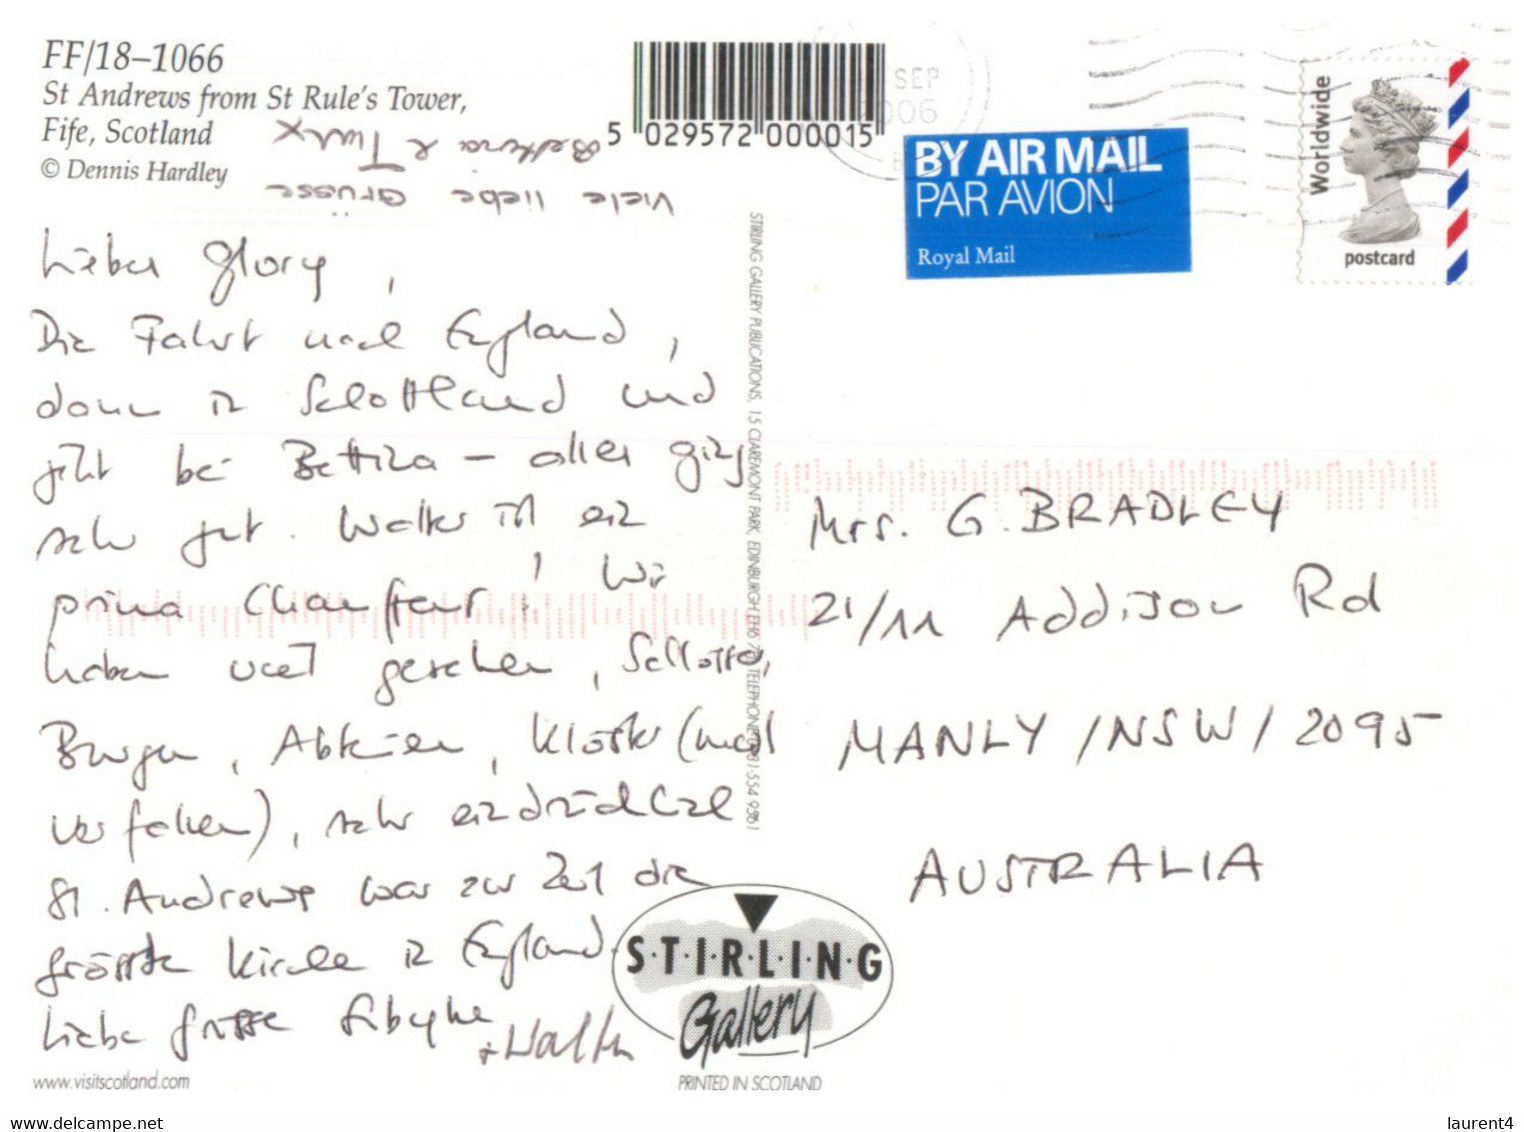 FF/18–1066
St Andrews from St Rule's Tower,
Fife, Scotland
© Dennis Hardley
5 029572 000015
SEP
2006
BY AIR MAIL
PAR AVION
Royal Mail
Worldwide
postcard
Viele liebe Grüsse
Bettina &
Lieber Glory,
Die Fahrt nach England,
dann in Schottland und
jetzt bei Bettina – alles ging
sehr gut. Walter ist ein
prima Chauffeur! Wir
haben viel gesehen, Schlösser,
Burgen, Abteien, Klöster (und
verfallen), sehr eindrücklich
St. Andrews war zur Zeit die
grösste Kirche in England.
Liebe Grüsse
+ Walter
STIRLING GALLERY PUBLICATIONS, 15 CLAREMONT PARK, EDINBURGH EH6 7 TELEPHONE 0131-554 9561
Mrs. G. BRADLEY
21/11 Addison Rd
MANLY /NSW/ 2095
AUSTRALIA
S·T·I·R·L·I·N·G
Gallery
www.visitscotland.com
PRINTED IN SCOTLAND
delcampe.net
laurent4